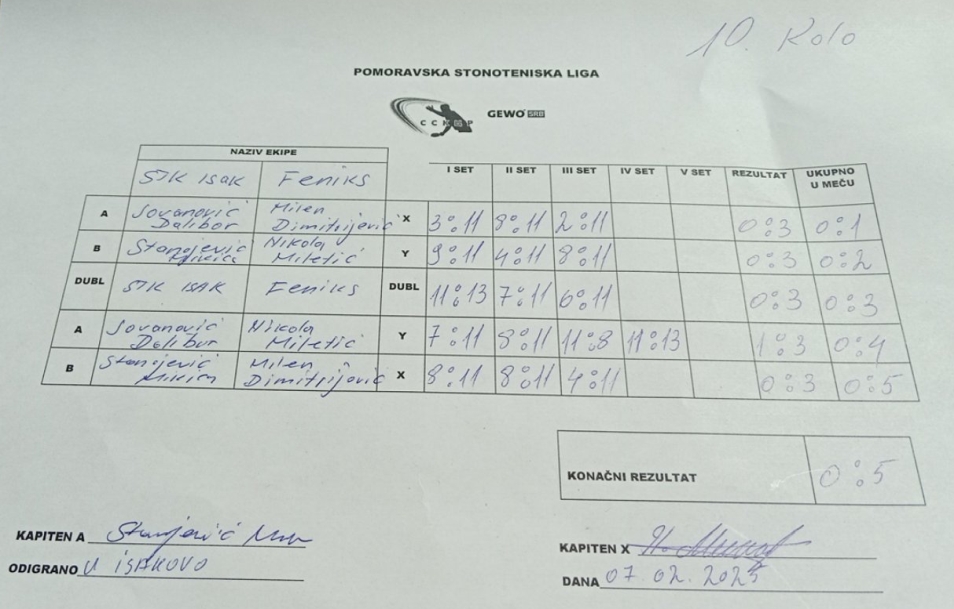 10. Kolo
POMORAVSKA STONOTENISKA LIGA
CCK GP GEWO SRB
NAZIV EKIPE
STK ISAK Feniks I SET II SET III SET IV SET V SET REZULTAT UKUPNO U MEČU
A Jovanović Dalibor Milen Dimitrijević X 3:11 8:11 2:11 0:3 0:1
B Stanojević Nikola Miletić Y 9:11 4:11 8:11 0:3 0:2
DUBL STK ISAK Feniks DUBL 11:13 7:11 6:11 0:3 0:3
A Jovanović Dalibor Nikola Miletić Y 7:11 8:11 11:8 11:13 1:3 0:4
B Stanijević Milen Dimitrijović X 8:11 8:11 4:11 0:3 0:5
KONAČNI REZULTAT 0:5
KAPITEN A Stanojević
KAPITEN X
ODIGRANO U ISAKOVO
DANA 07.02.2025